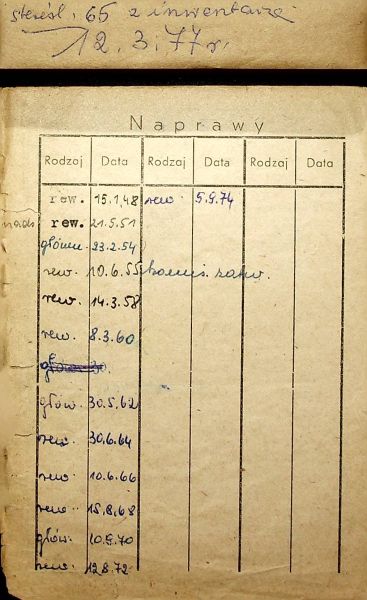 skreśl. 65 z inwentarza
12.3.77 r.
Naprawy
Rodzaj Data Rodzaj Data Rodzaj Data
rew. 15.1.48 rew. 5.9.74
rew. 21.5.51
główn. 23.2.54
rew. 10.6.55
rew. 14.3.58
rew. 8.3.60
główn 30.
głów. 30.5.62
rew. 30.6.64
rew. 10.6.66
rew. 15.8.68
głów. 10.9.70
rew. 12.8.72